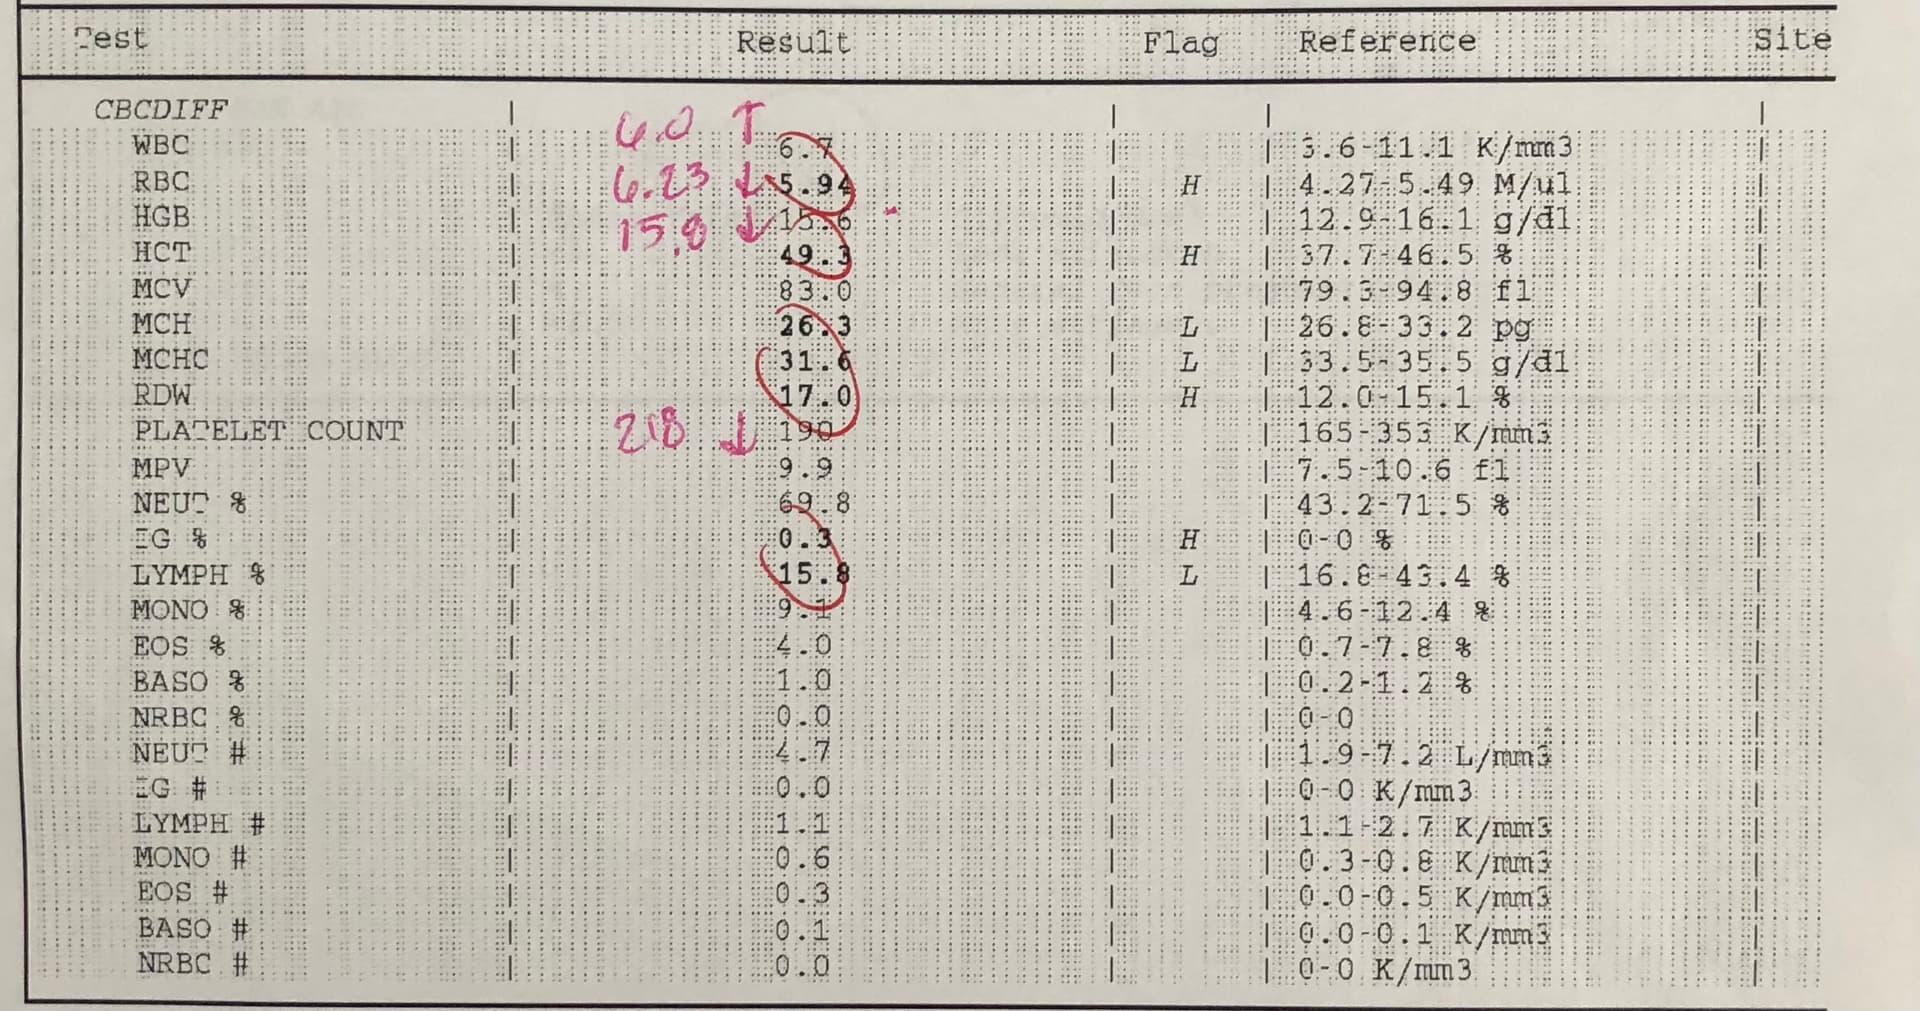 Test Result Flag Reference Site
CBCDIFF
6.0 ↑
WBC 6.7 3.6-11.1 K/mm3
RBC 6.23 ↓ 5.94 H 4.27-5.49 M/ul
HGB 15.8 ↓ 15.6 12.9-16.1 g/dl
HCT 49.3 H 37.7-46.5 %
MCV 83.0 79.3-94.8 fl
MCH 26.3 L 26.8-33.2 pg
MCHC 31.6 L 33.5-35.5 g/dl
RDW 17.0 H 12.0-15.1 %
PLATELET COUNT 218 ↓ 190 165-353 K/mm3
MPV 9.9 7.5-10.6 fl
NEUT % 69.8 43.2-71.5 %
IG % 0.3 H 0-0 %
LYMPH % 15.8 L 16.8-43.4 %
MONO % 9.1 4.6-12.4 %
EOS % 4.0 0.7-7.8 %
BASO % 1.0 0.2-1.2 %
NRBC % 0.0 0-0
NEUT # 4.7 1.9-7.2 L/mm3
IG # 0.0 0-0 K/mm3
LYMPH # 1.1 1.1-2.7 K/mm3
MONO # 0.6 0.3-0.8 K/mm3
EOS # 0.3 0.0-0.5 K/mm3
BASO # 0.1 0.0-0.1 K/mm3
NRBC # 0.0 0-0 K/mm3